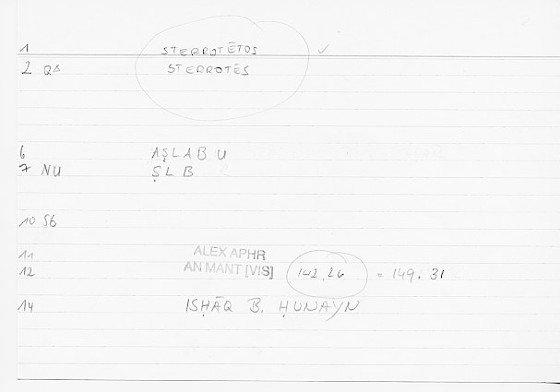 1 STERROTĒTOS ✓
2 QΔ STERROTĒS
6 AṢLABU
7 NU ṢLB
10 S6
11 ALEX APHR
12 AN MANT [VIS] 142.26 = 149.31
14 ISḤĀQ B. ḤUNAYN